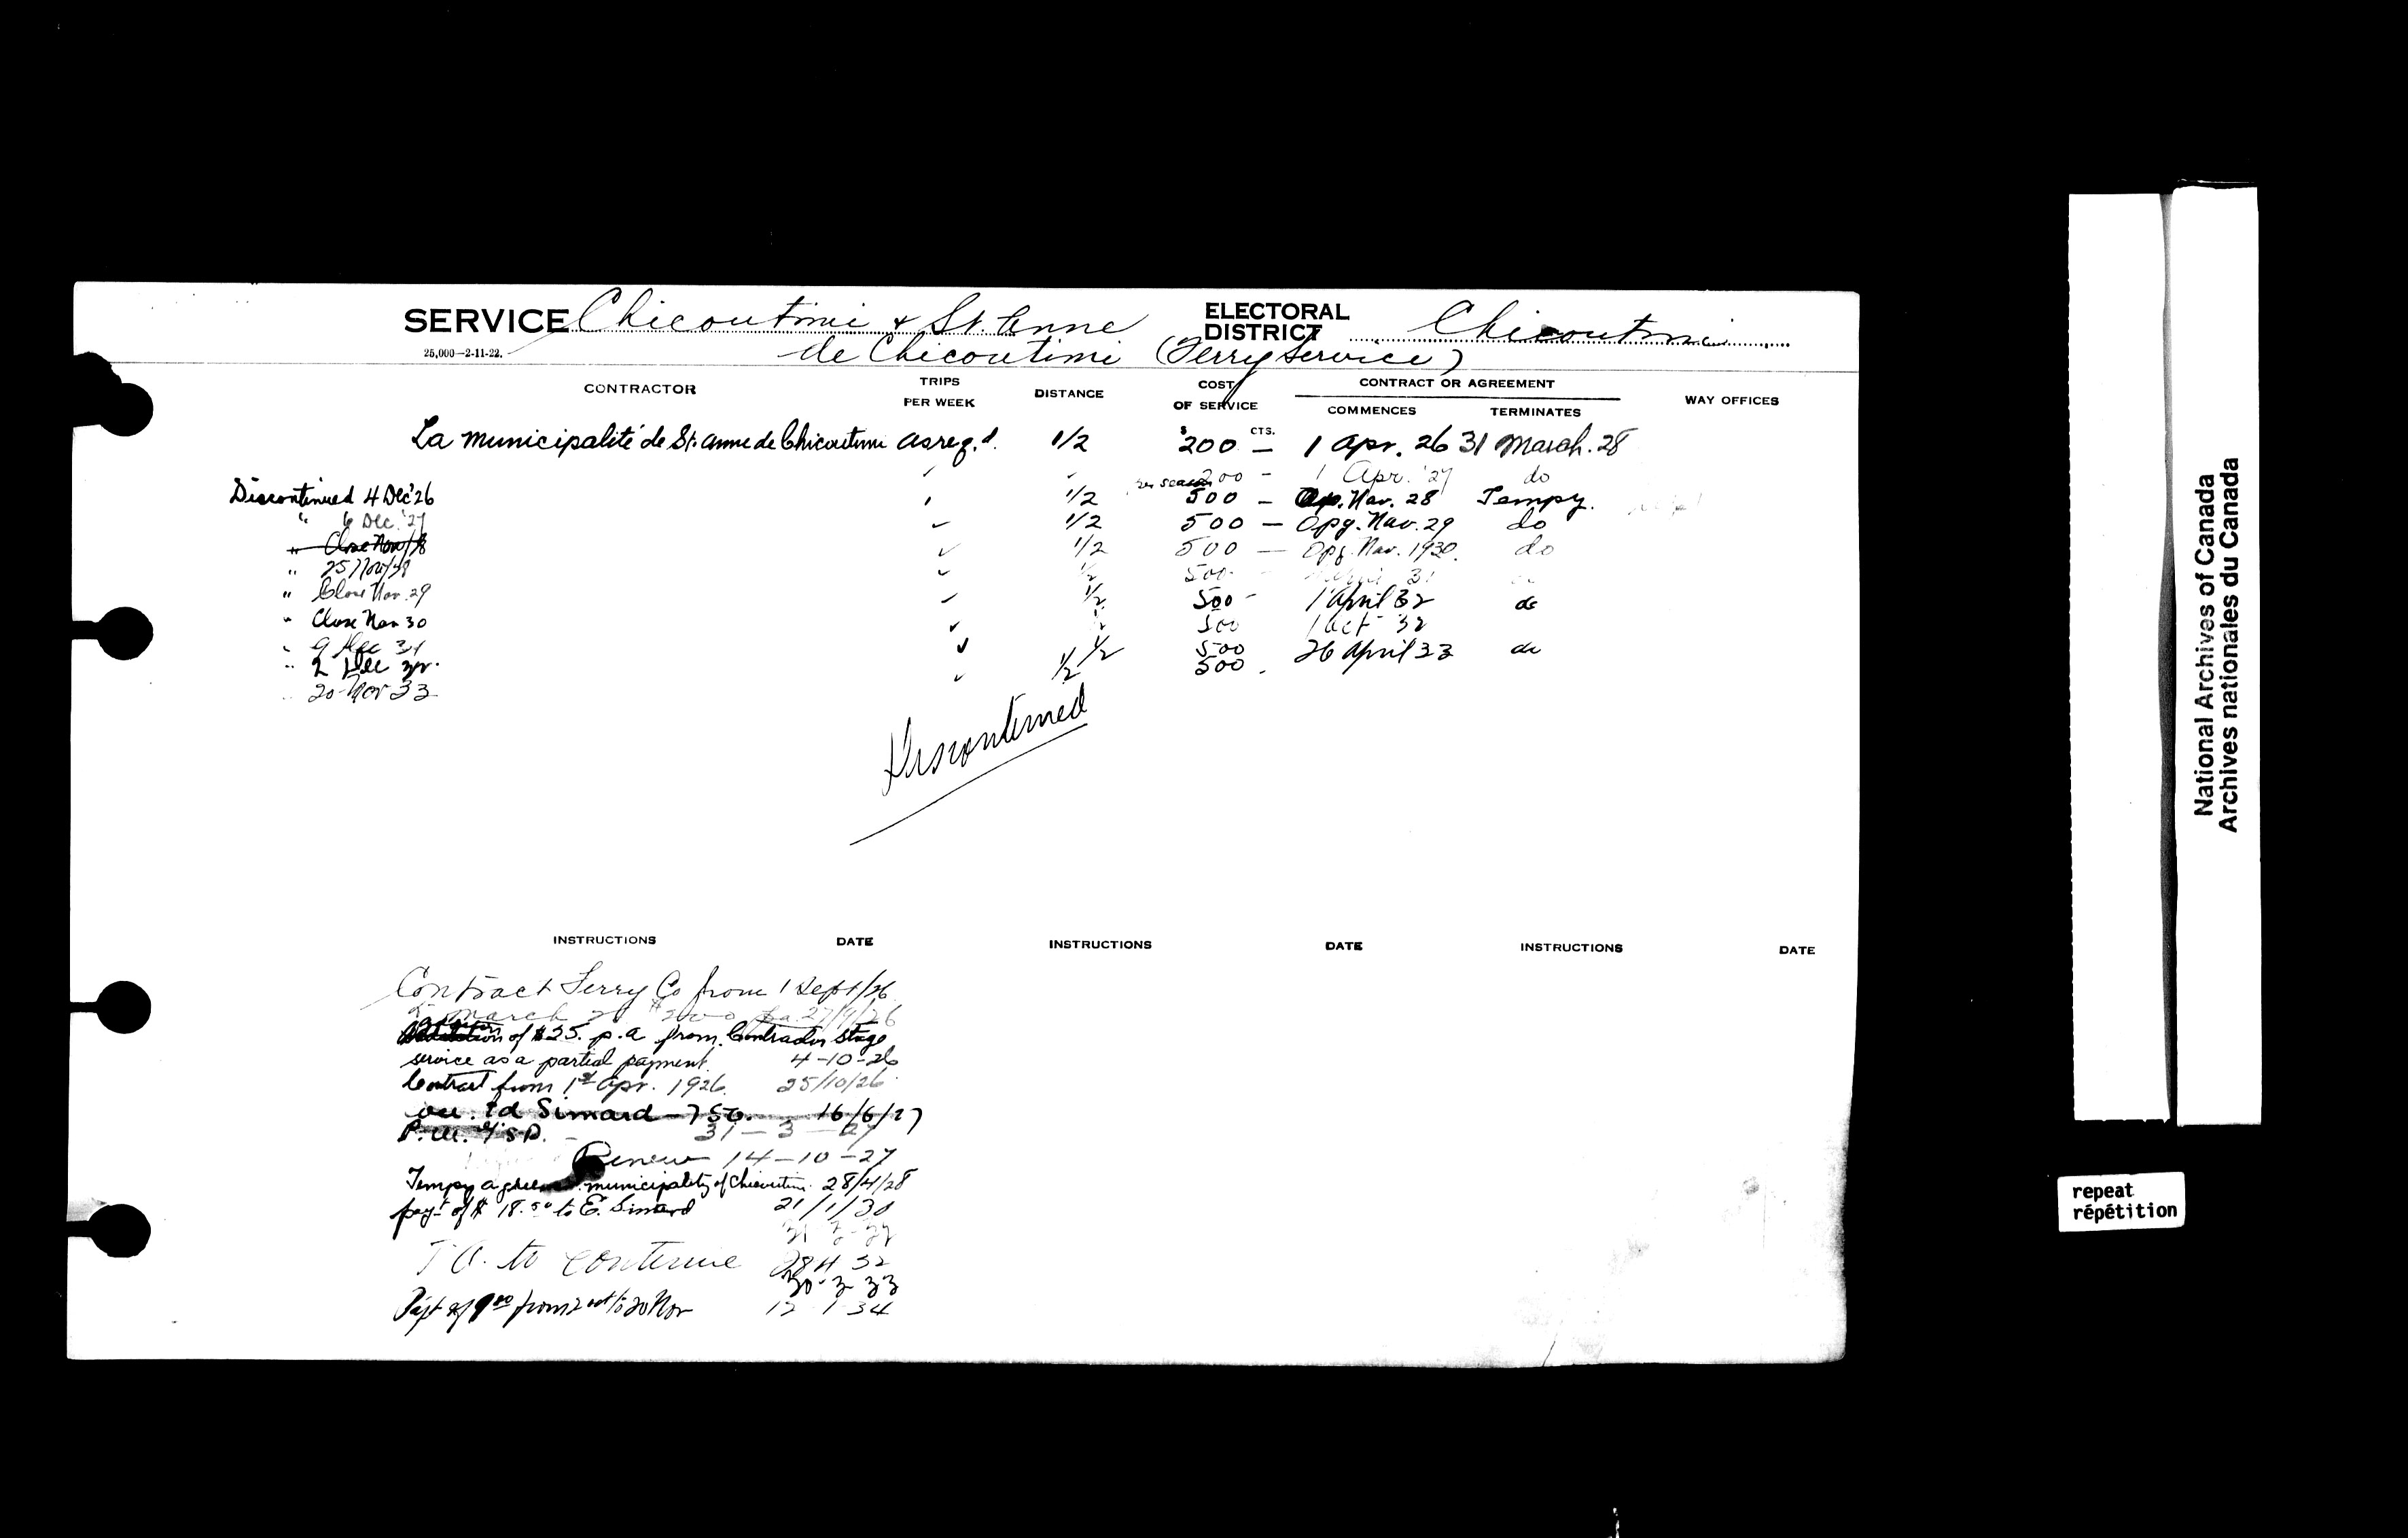 SERVICE Chicoutimi & St. Anne
de Chicoutimi (Ferry Service)
25,000—2-11-22.
ELECTORAL
DISTRICT Chicoutimi
CONTRACTOR TRIPS PER WEEK DISTANCE COST OF SERVICE CONTRACT OR AGREEMENT WAY OFFICES
COMMENCES TERMINATES
$ CTS.
La municipalité de St. Anne de Chicoutimi as req.d. 1/2 200 — 1 Apr. 26 31 March. 28
per season 200 - 1 Apr. '27 do
Discontinued 4 Dec '26 1/2 500 — Op. Nav. 28 Tempy.
" 6 Dec. '27 1/2 500 — Opg. Nav. 29 do
" Close Nav/28 1/2 500 — Opg. Nav. 1930. do
" 25 Nov/28 1/2 500 - 31
" Close Nav. 29 1/2 500 - 1 April 32 do
" Close Nav 30 500 1 Oct 32
" 9 Dec 31 1/2 500 26 April 33 do
" 2 Dec 32. 1/2 500 .
" 20 Nov 33
Discontinued
INSTRUCTIONS DATE INSTRUCTIONS DATE INSTRUCTIONS DATE
Contract Ferry Co from 1 Sept/26
March 28 $200 pa. 27/9/26
of $25. p.a from Contractor Stage
service as a partial payment. 4-10-26
Contract from 1st Apr. 1926. 25/10/26
Ed Simard — 16/6/27
31 — 3 — 27
Renew 14-10-27
Tempy agreem. municipality of Chicoutimi. 28/4/28
payt of $18.50 to E. Simard 21/1/30
T.A. to continue 28 4 32
30-3-33
Payt of 9.00 from 2 oct to 20 Nov 12 1 34
National Archives of Canada
Archives nationales du Canada
repeat
répétition